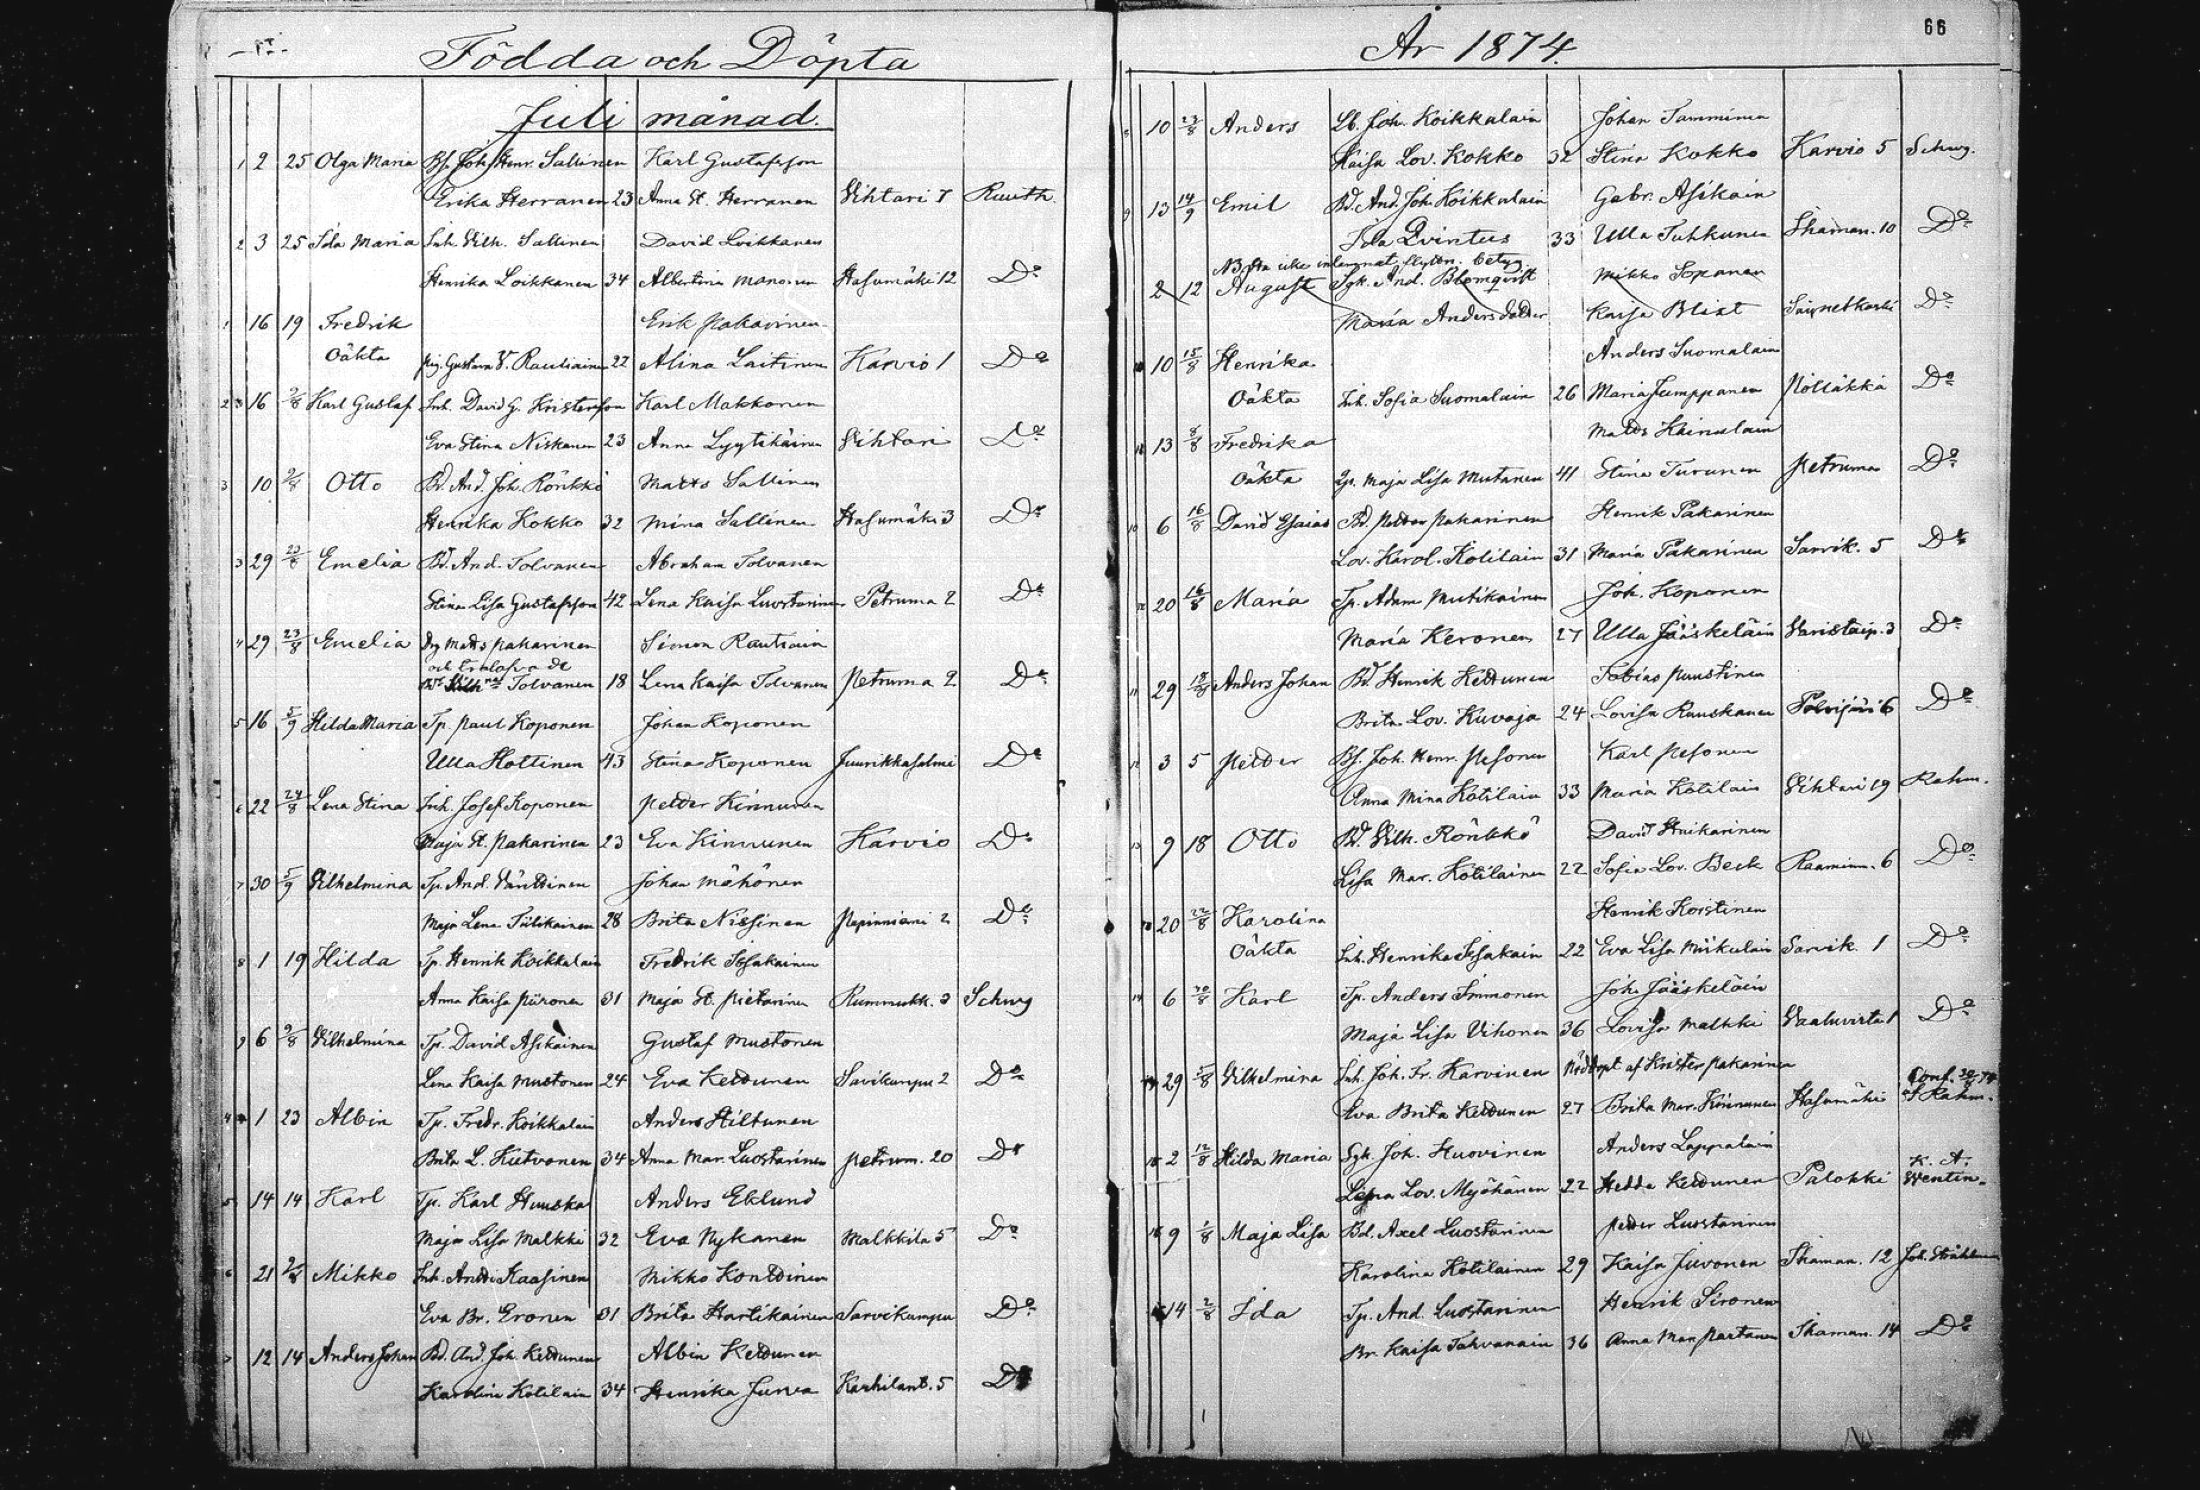 Födda och Döpta
Juli månad.
1 2 25 Olga Maria Bf. Joh. Henr. Sallinen Karl Gustafsson
Erika Herranen 23 Anna St. Herranen Vihtari 7 Ruuth.
2 3 25 Ida Maria Inh. Vilh. Sallinen David Loikkanen
Henrika Loikkanen 34 Albertina Manonen Hasumäki 12 Do
1 16 19 Fredrik Erik Pakarinen
Oäkta Pig. Gustava V. Rautiainen 22 Alina Laitinen Karvio 1 Do
2 16 2/8 Karl Gustaf Inh. David G. Kristersson Karl Makkonen
Eva Stina Niskanen 23 Anna Lyytikäinen Vihtari Do
3 10 2/8 Otto Bd. And. Joh. Rönkkö Matts Sallinen
Henrika Kokko 32 Mina Sallinen Hasumäki 3 Do
3 29 23/8 Emelia Bd. And. Tolvanen Abraham Tolvanen
Stina Lisa Gustafsson 42 Lena Kaisa Luostarinen Petruma 2 Do
4 29 23/8 Emelia Drg Matts Pakarinen Simon Rautiain
och trolofva de
Tolvanen 18 Lena Kaisa Tolvanen Petruma 2 Do
5 16 5/9 Hilda Maria Tp. Paul Koponen Johan Koponen
Ulla Hottinen 43 Stina Koponen Juurikkasalmi Do
6 22 24/8 Lena Stina Inh. Josef Koponen Petter Kinnunen
Maja St. Pakarinen 23 Eva Kinnunen Karvio Do
7 30 5/9 Vilhelmina Tp. And. Väntdinen Johan Mähönen
Maja Lena Tiilikainen 28 Brita Nissinen Papinniemi 2 Do
8 1 19 Hilda Tp. Henrik Koikkalain Fredrik Issakainen
Anna Kaisa Piironen 31 Maja St. Pietarinen Rummukk. 3 Schwg
9 6 2/8 Vilhelmina Tp. David Asikainen Gustaf Mustonen
Lena Kaisa Mustonen 24 Eva Kettunen Savikumpu 2 Do
4 1 23 Albin Tp. Fredr. Koikkalain Anders Hiltunen
Brita L. Kietvonen 34 Anna Mar. Luostarinen Petrum. 20 Do
5 14 14 Karl Tp. Karl Huuska Anders Eklund
Maja Lisa Malkki 32 Eva Nykanen Malkkila 5 Do
6 21 2/8 Mikko Inh. Antti Kaasinen Mikko Konttinen
Eva Br. Eronen 31 Brita Hartikainen Sarvikumpu Do
7 12 14 Anders Johan Bd. And. Joh. Kettunen Albin Kettunen
Karolina Kotilain 34 Henrika Jurva Karhilant. 5 Do
År 1874.
66
8 10 23/8 Anders Lb. Joh. Koikkalain Johan Tamminen
Kaisa Lov. Kokko 32 Stina Kokko Karvio 5 Schwg.
9 13 14/9 Emil Bd. And. Joh. Koikkalain Gabr. Asikain
Ida Qvintus 33 Ulla Tuhkunen Ihaman. 10 Do
2 12 August Sgk. And. Blomqvist Mikko Soponen
Maria Andersdotter Kaisa Blixt Do
10 15/8 Henrika Anders Suomalain
Oäkta Inh. Sofia Suomalain 26 Maria Jumppanen Pölläkkä Do
13 8/8 Fredrika Matts Kainulain
Oäkta Maja Lisa Mutanen 41 Stina Turunen Petruma Do
10 6 16/8 David Esaias Bd. Petter Pakarinen Henrik Pakarinen
Lov. Karol. Kotilain 31 Maria Pakarinen Sarvik. 5 Do
20 16/8 Maria Tp. Adam Mutikainen Joh. Koponen
Maria Keronen 27 Ulla Jääskeläin Varistaip. 3 Do
11 29 18/8 Anders Johan Bd. Henrik Kettunen Tobias Puustinen
Brita Lov. Kuvaja 24 Lovisa Ruuskanen Polvijärvi 6 Do
12 3 5 Petter Bf. Joh. Henr. Pesonen Karl Pesonen
Anna Mina Kotilain 33 Maria Kotilain Vihtari 19 Rahm.
13 9 18 Otto Bd. Vilh. Rönkkö David Huikarinen
Lisa Mar. Kotilainen 22 Sofia Lov. Beck Raaminm. 6 Do
20 22/8 Karolina Henrik Koistinen
Oäkta Inh. Henrika Issakain 22 Eva Lisa Miikulain Sarvik. 1 Do
14 6 30/8 Karl Tp. Anders Immonen Joh. Jääskeläin
Maja Lisa Vihonen 36 Lovisa Malkki Vaaluvirta 1 Do
29 5/8 Vilhelmina Inh. Joh. Fr. Karvinen Nöddöpt af Krister Pakarinen
Eva Brita Kettunen 27 Brita Mar. Kinnunen Hasumäki Conf. 30/8 74 af Rahm.
15 2 12/8 Hilda Maria Sgk. Joh. Huovinen Anders Lappalain
Lov. Myöhänen 22 Hedda Kettunen Palokki K. A. Wentin.
16 9 1/8 Maja Lisa Bd. Axel Luostarinen Petter Luostarinen
Karolina Kotilainen 29 Kaisa Juvonen Ihaman. 12 Joh. Ståhlman
14 2/8 Ida Tp. And. Luostarinen Henrik Sironen
Br. Kaisa Tahvanain 36 Anna Mar. Partanen Ihaman. 14 Do